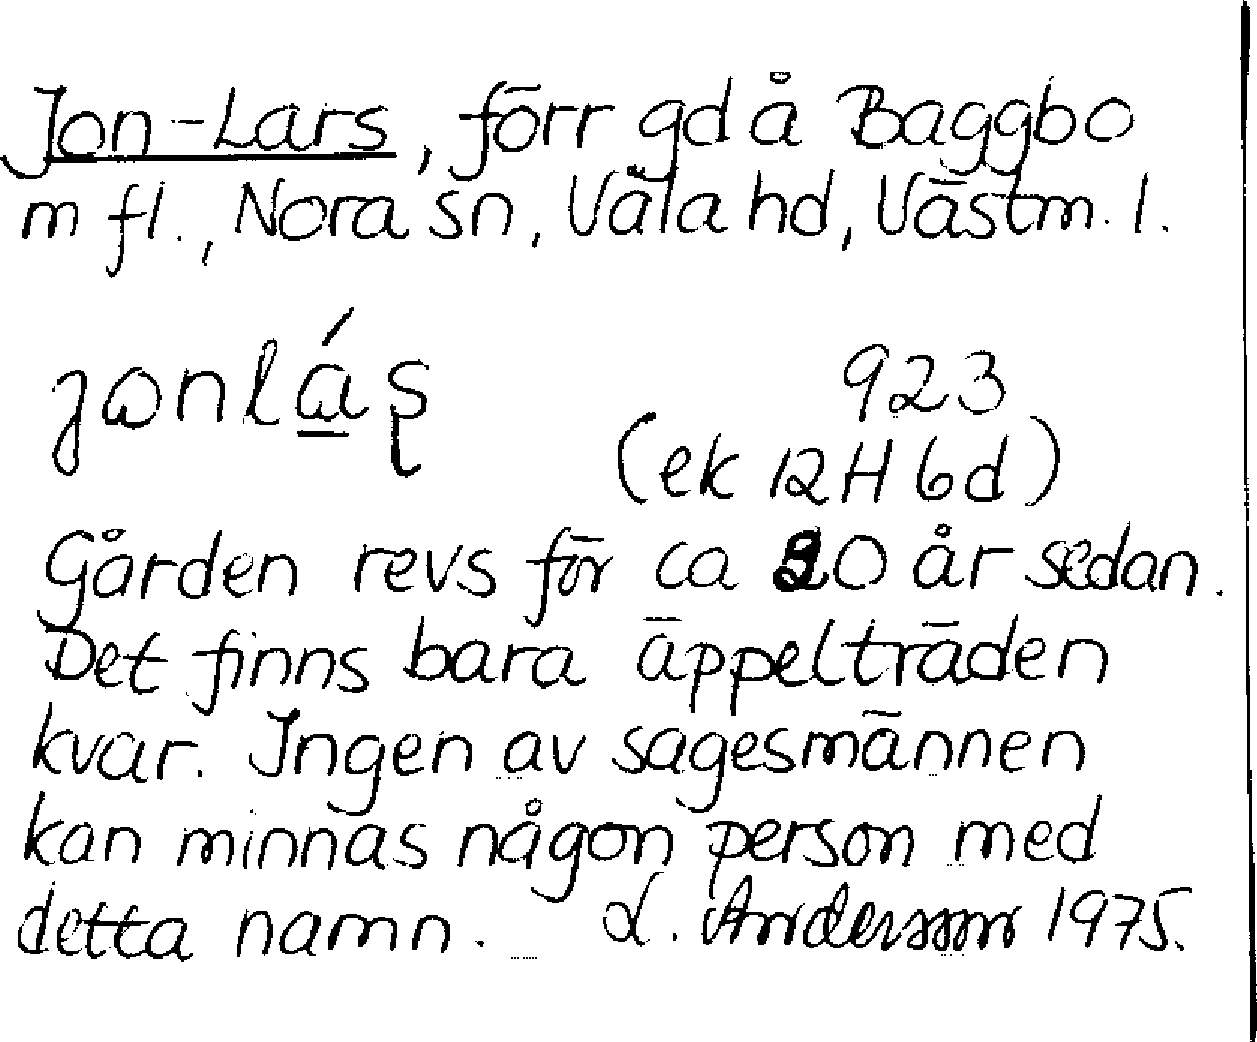 Jon-Lars, förr gd å Baggbo
m fl., Nora sn, Våla hd, Västm. l.
923
(ek 12H 6d)
Gården revs för ca 20 år sedan.
Det finns bara äppelträden
kvar. Ingen av sagesmännen
kan minnas någon person med
detta namn. L. Andersson 1975.